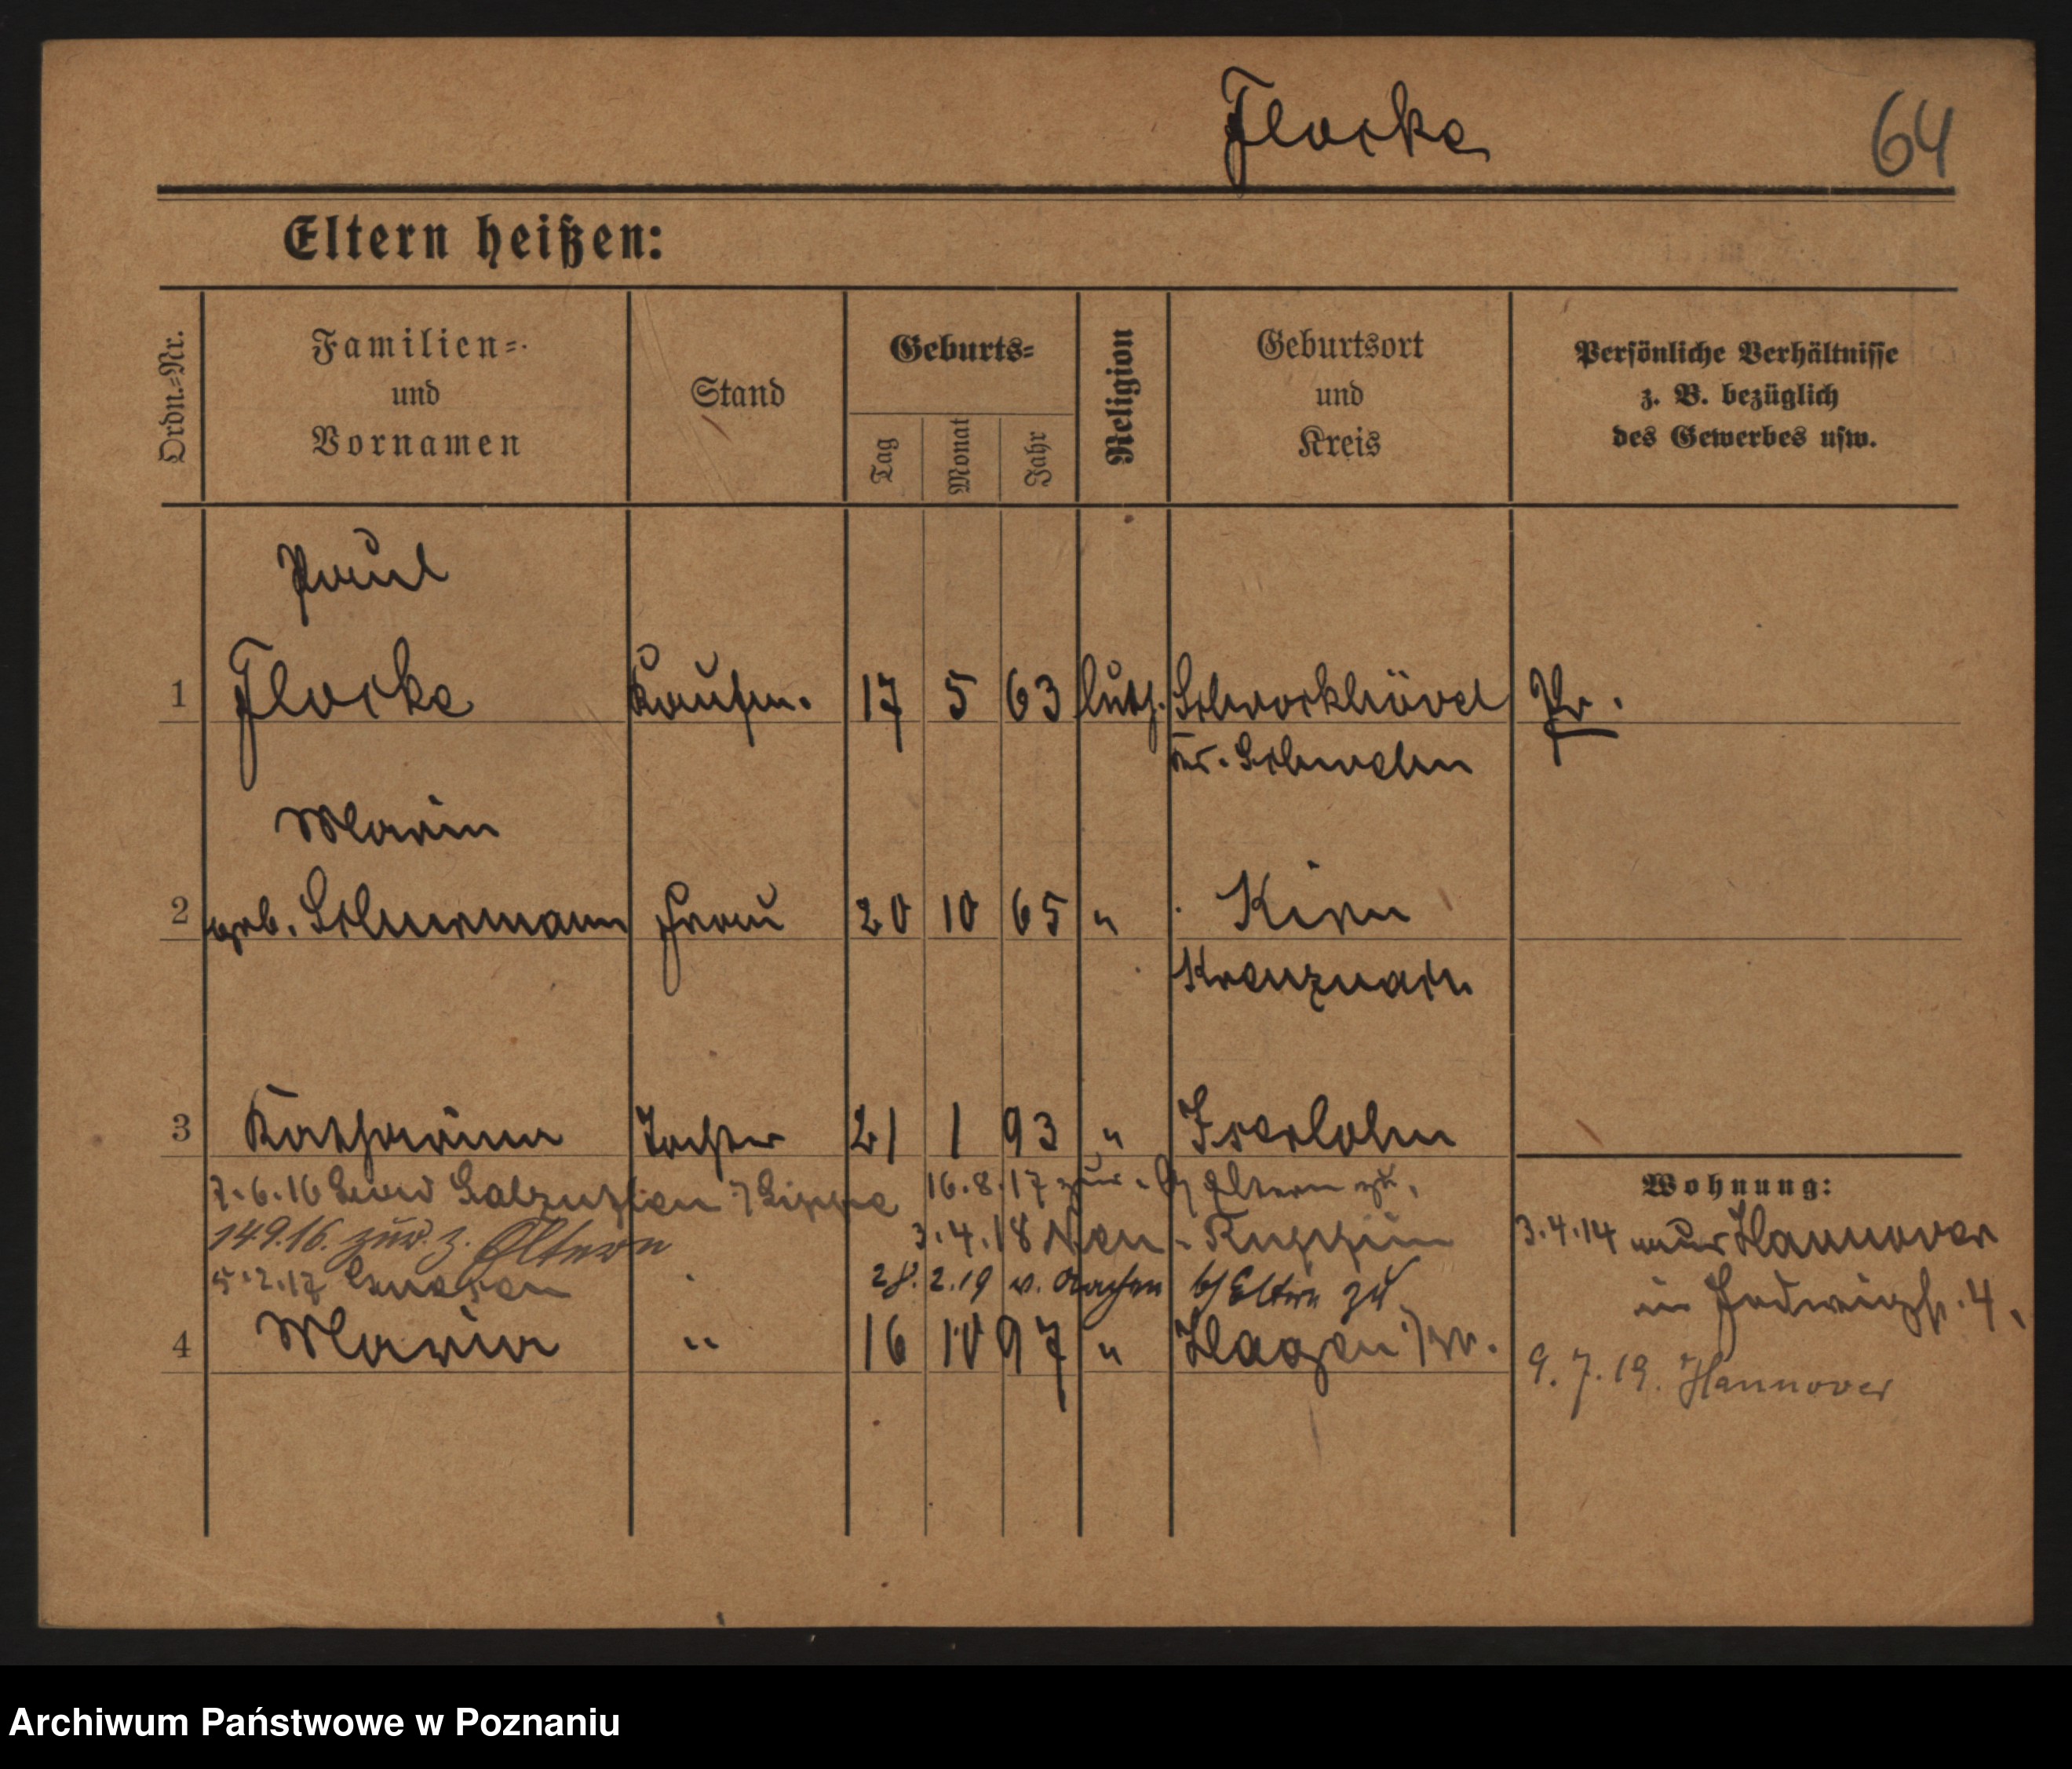 Flocke
64
Eltern heißen:
Ordn.=Nr.
Familien=
und
Vornamen
Stand
Geburts=
Tag
Monat
Jahr
Religion
Geburtsort
und
Kreis
Persönliche Verhältnisse
z. B. bezüglich
des Gewerbes usw.
Paul
1 Flocke Kaufm. 17 5 63 luth. Schwockhövel Pr.
Kr. Schwelm
Marie
2 geb. Schurmann Frau 20 10 65 " Kirn
Kreuznach
3 Katharina Tochter 21 1 93 " Iserlohn
7.6.16 Salzuflen i/Lippe 16.8.17 zur. b/ Eltern zu.
Wohnung:
14.9.16. zur. z. Eltern 3.4.18 Neu-Ruppin
3.4.14 aus Hannover
5.2.17 Gnesen 28.2.19 v. Aachen b/ Eltern zu
in Hedwigstr. 4,
4 Maria " 16 10 97 " Hagen i/W.
9.7.19. Hannover
Archiwum Państwowe w Poznaniu